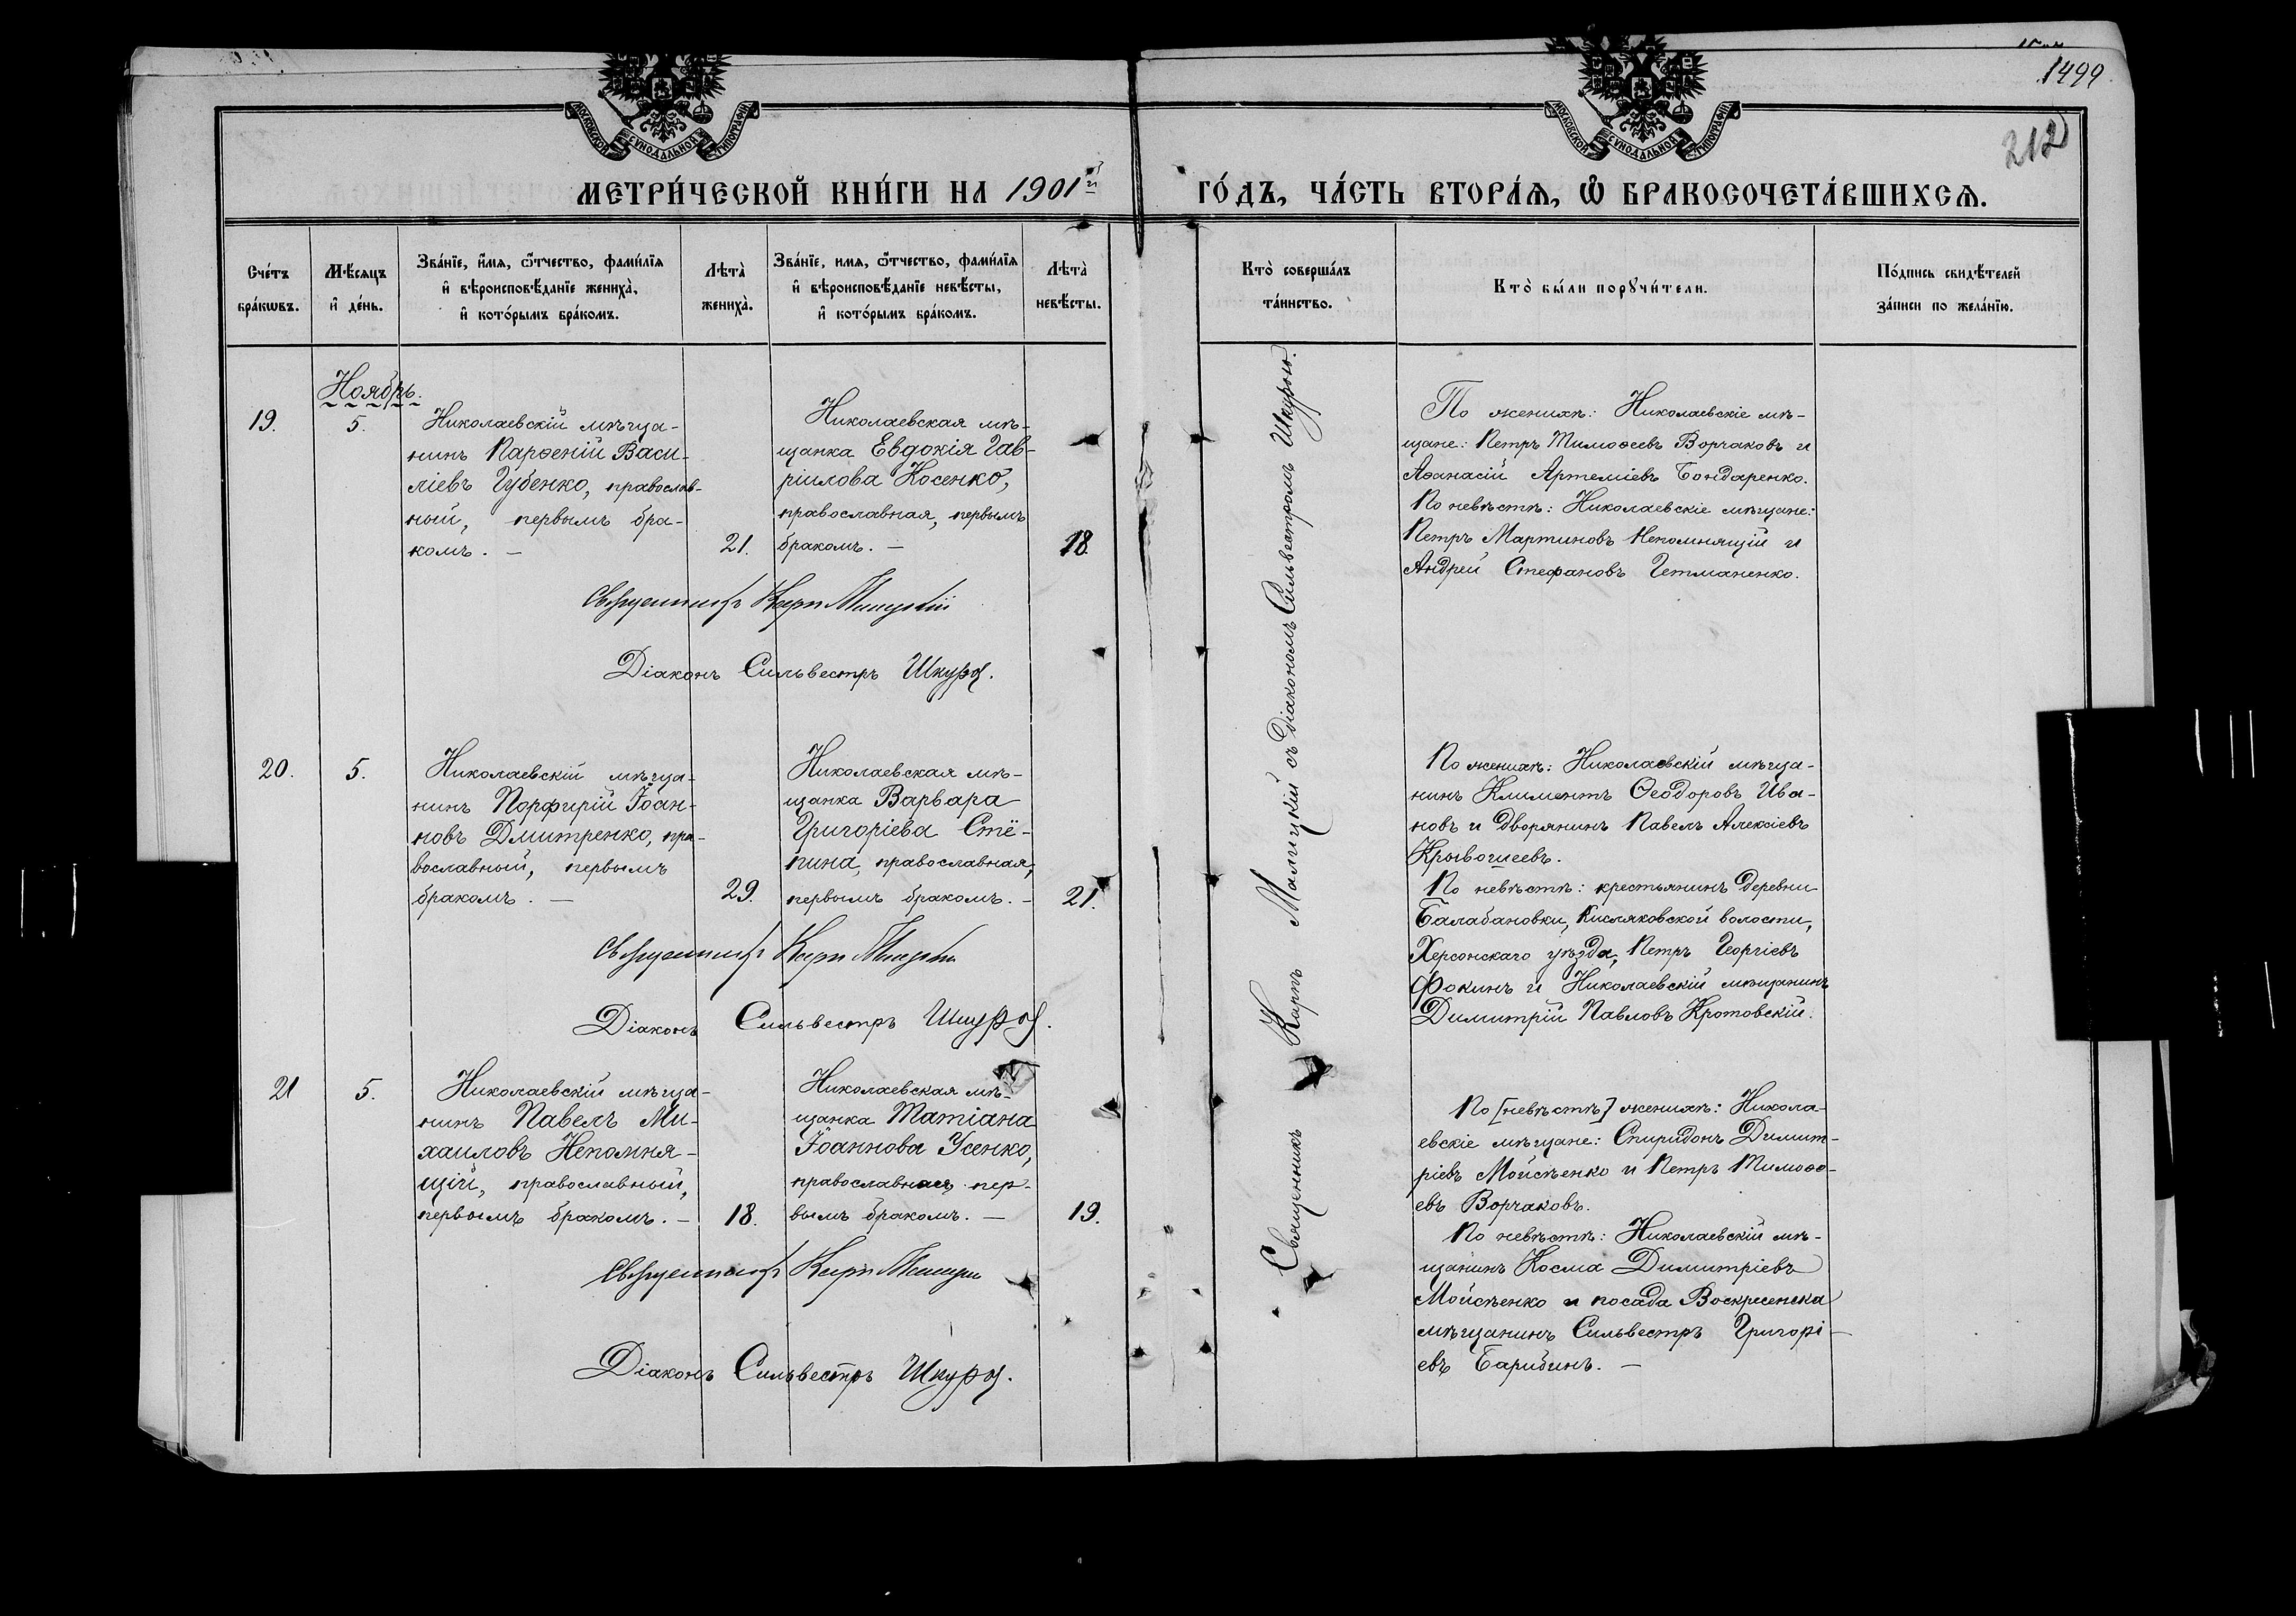 1499
212
МОСКОВСКОЙ СѴНОДАЛЬНОЙ ТИПОГРАФІИ
МОСКОВСКОЙ СѴНОДАЛЬНОЙ ТИПОГРАФІИ
МЕТРИ́ЧЕСКОЙ КНИ́ГИ НА 1901й ГО́ДЪ, ЧА́СТЬ ВТОРА́Ѧ, Ѽ БРАКОСОЧЕТА́ВШИХСѦ.
Сче́тъ
бра́кѡвъ.
Мѣ́сяцъ
и҆ де́нь.
Зва́нїе, и҆́мя, ѻ҆́тчество, фами́лїя
и҆ вѣроисповѣ́данїе жениха̀,
и҆ кото́рымъ бра́комъ.
Лѣта̀
жениха̀.
Зва́нїе, имя, ѻ҆́тчество, фами́лїя
и҆ вѣроисповѣ́данїе невѣ́сты,
и҆ кото́рымъ бра́комъ.
Лѣта̀
невѣ́сты.
Кто̀ соверша́лъ
та́инство.
Кто̀ бы́ли порꙋчи́тели.
По́дпись свидѣ́телей
за́писи по жела́нїю.
Ноябрь.
19.
5.
Николаевскій мѣща-
нинъ Парѳеній Васи-
ліевъ Губенко, православ-
ный, первымъ бра-
комъ. —
21.
Николаевская мѣ-
щанка Евдокія Гав-
ріилова Косенко,
православная, первымъ
бракомъ. —
18.
Священникъ Карпъ Малицкій
Діаконъ Сильвестръ Шкура.
По женихѣ: Николаевскіе мѣ-
щане: Петръ Тимоѳеевъ Ворчаковъ и
Аѳанасій Артеміевъ Бондаренко.
По невѣстѣ: Николаевскіе мѣщане:
Петръ Мартиновъ Непомнящій и
Андрей Стефановъ Гетманенко.
20.
5.
Николаевскій мѣща-
нинъ Порфирій Іоан-
новъ Дмитренко, пра-
вославный, первымъ
бракомъ. —
29.
Николаевская мѣ-
щанка Варвара
Григоріева Стё-
пина, православная,
первымъ бракомъ. —
21.
Священникъ Карпъ Малицкій
Діаконъ Сильвестръ Шкура.
По женихѣ: Николаевскій мѣща-
нинъ Климентъ Ѳеодоровъ Ива-
новъ и дворянинъ Павелъ Алексіевъ
Кривошеевъ.
По невѣстѣ: крестьянинъ деревни
Балабановки, Кисляковской волости,
Херсонскаго уѣзда, Петръ Георгіевъ
Фокинъ и Николаевскій мѣщанинъ
Димитрій Павловъ Кротовскій.
21
5.
Николаевскій мѣща-
нинъ Павелъ Ми-
хаиловъ Непомня-
щій, православный,
первымъ бракомъ. —
18.
Николаевская мѣ-
щанка Татіана
Іоаннова Усенко,
православная, пер-
вымъ бракомъ. —
19.
Священникъ Карпъ Малицкій
Діаконъ Сильвестръ Шкура.
По [невѣстѣ] женихѣ: Никола-
евскіе мѣщане: Спиридонъ Димит-
ріевъ Мойсѣенко и Петръ Тимоѳе-
евъ Ворчаковъ.
По невѣстѣ: Николаевскій мѣ-
щанинъ Косма Димитріевъ
Мойсѣенко и посада Воскресенска
мѣщанинъ Сильвестръ Григорі-
евъ Барибинъ. —
Священникъ Карпъ Малицкій съ діакономъ Сильвестромъ Шкурою.